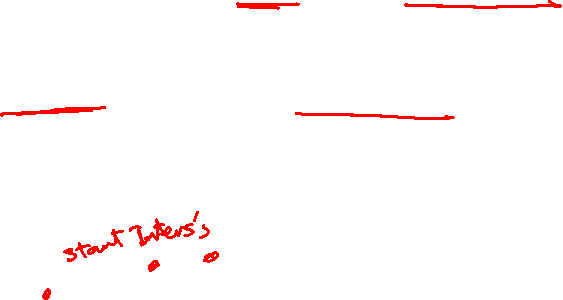 start Inters's